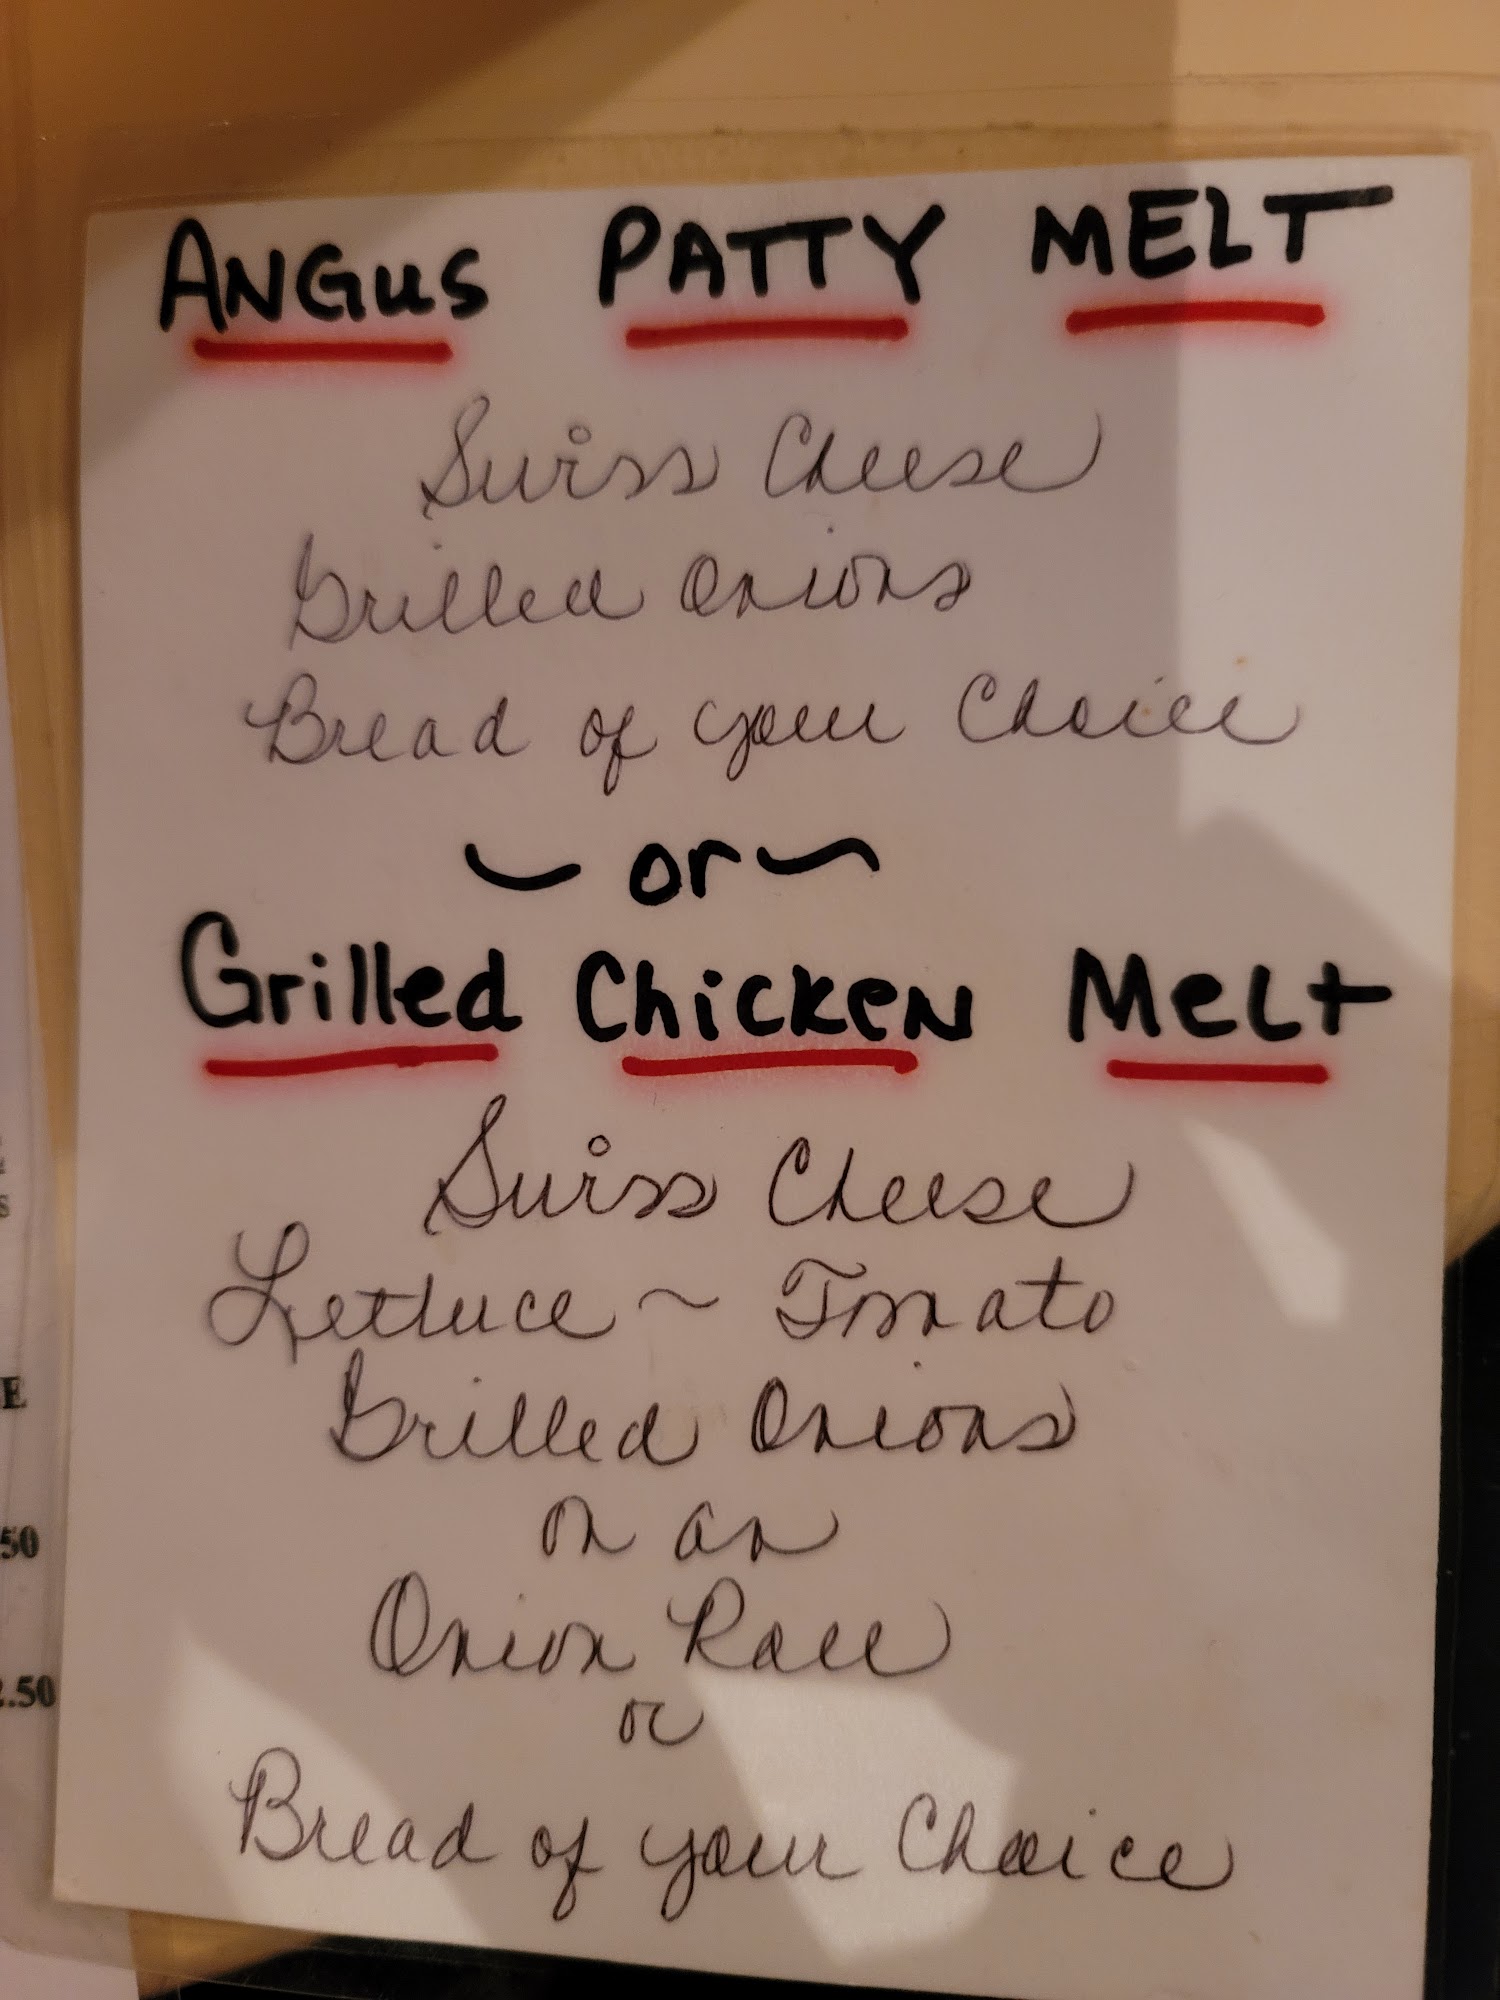 ANGUS PATTY MELT
Swiss Cheese
Grilled Onions
Bread of your Choice
~ or ~
Grilled Chicken Melt
Swiss Cheese
Lettuce ~ Tomato
Grilled Onions
on an
Onion Roll
or
Bread of your Choice
E
.50
.50